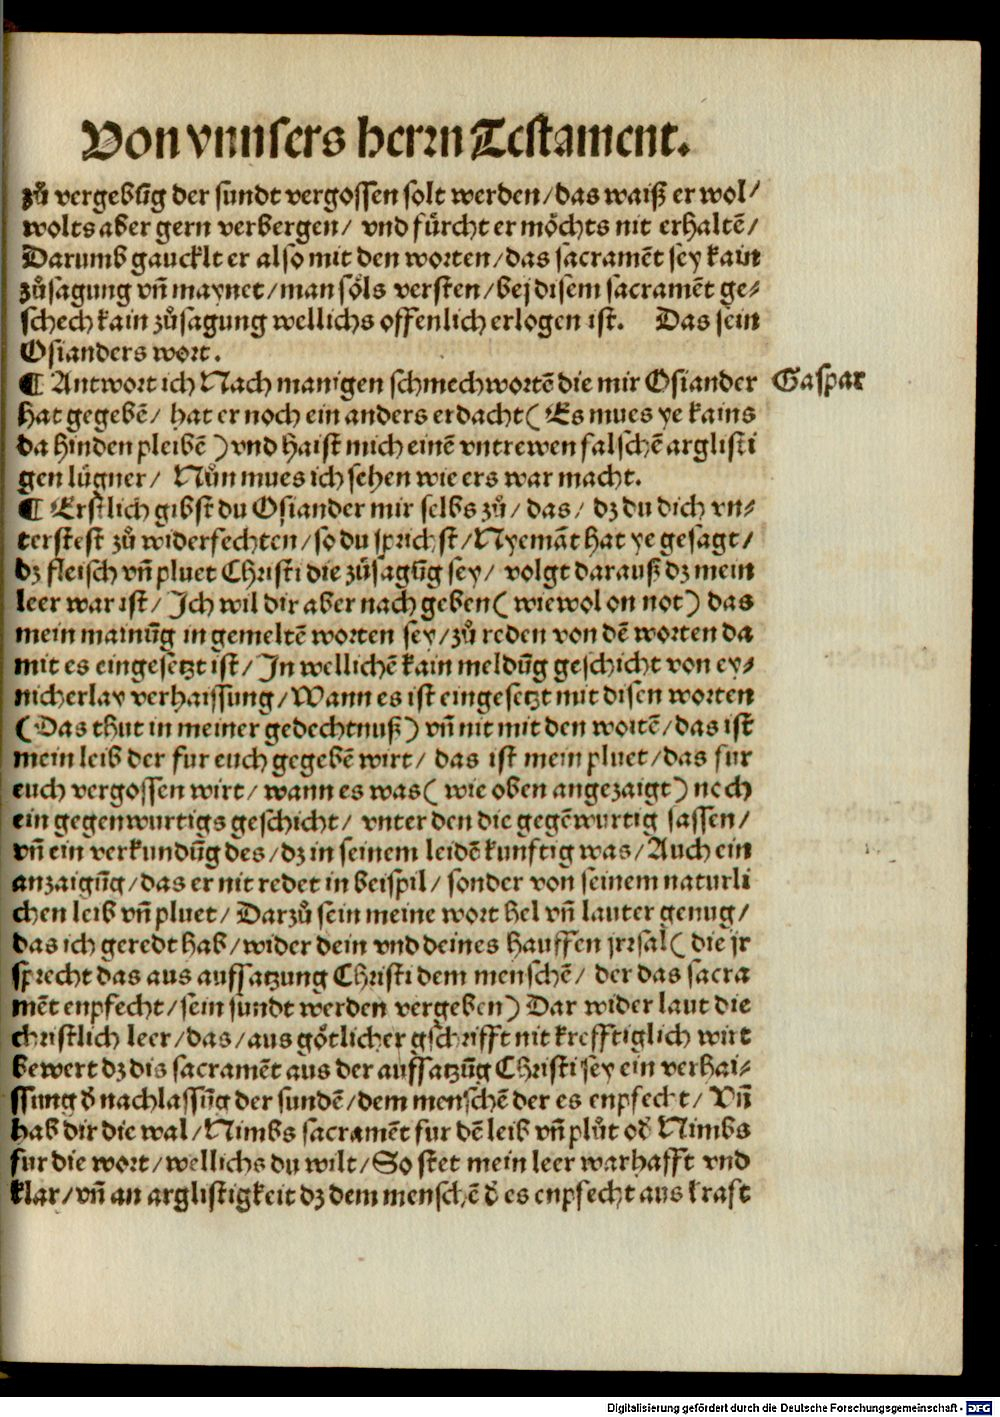 Von vnnsers herrn Testament.
zů vergebũg der sundt vergossen solt werden/das waiß er wol/
wolts aber gern verbergen/ vnd fürcht er möchts nit erhaltẽ/
Darumb gaucklt er also mit den worten/das sacramẽt sey kain
zůsagung vñ maynet/man söls versten/bej disem sacramẽt ge⸗
schech kain zůsagung wellichs offenlich erlogen ist. Das sein
Osianders wort.
¶ Antwort ich Nach manigen schmechwortẽ die mir Osiander
Gaspar
hat gegebẽ/ hat er noch ein anders erdacht(Es mues ye kains
da hinden pleibẽ)vnd haist mich einẽ vntrewen falschẽ arglisti
gen lügner/ Nůn mues ich sehen wie ers war macht.
¶ Erstlich gibst du Osiander mir selbs zů/das/ dz du dich vn⸗
terstest zů widerfechten/so du sprichst/Nyemãt hat ye gesagt/
dz fleisch vñ pluet Christi die zůsagũg sey/ volgt darauß dz mein
leer war ist/ Ich wil dir aber nach geben(wiewol on not)das
mein mainũg in gemeltẽ worten sey/zů reden von dẽ worten da
mit es eingesetzt ist/In wellichẽ kain meldũg geschicht von ey⸗
nicherlay verhaissung/Wann es ist eingesetzt mit disen worten
(Das thut in meiner gedechtnuß)vñ nit mit den wortẽ/das ist
mein leib der fur euch gegebẽ wirt/ das ist mein pluet/das fur
euch vergossen wirt/ wann es was(wie oben angezaigt)noch
ein gegenwurtigs geschicht/ vnter den die gegẽwurtig sassen/
vñ ein verkundũg des/dz in seinem leidẽ kunftig was/Auch ein
anzaigũg/das er nit redet in beispil/sonder von seinem naturli
chen leib vñ pluet/ Darzů sein meine wort hel vñ lauter genug/
das ich geredt hab/wider dein vnd deines hauffen jrrsal(die jr
sprecht das aus auffsatzung Christi dem menschẽ/ der das sacra
mẽt enpfecht/sein sundt werden vergeben)Dar wider laut die
christlich leer/das/aus götlicher gschrifft nit krefftiglich wirt
bewert dz dis sacramẽt aus der auffsatzũg Christi sey ein verhai⸗
ssung d̃ nachlassũg der sundẽ/dem menschẽ der es enpfecht/ Vñ
hab dir die wal/Nimbs sacramẽt fur dẽ leib vñ plůt od̃ Nimbs
fur die wort/wellichs du wilt/So stet mein leer warhafft vnd
klar/vñ an arglistigkeit dz dem menschẽ d̃ es enpfecht aus kraft
Digitalisierung gefördert durch die Deutsche Forschungsgemeinschaft - DFG